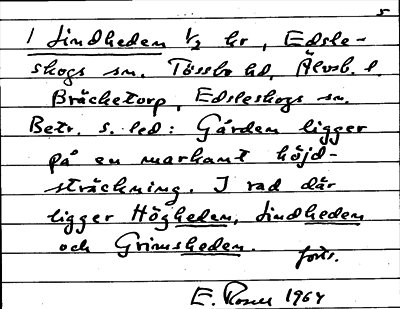 5
1 Lindheden 1/2 hr, Edsle-
skogs sn. Tössbo hd, Älvsb. l.
Bräcketorp, Edsleskogs sn.
Betr. s. led: Gården ligger
på en markant höjd-
sträckning. I rad där
ligger Högheden, Lindheden
och Grimsheden.
forts.
E. Rosell 1964